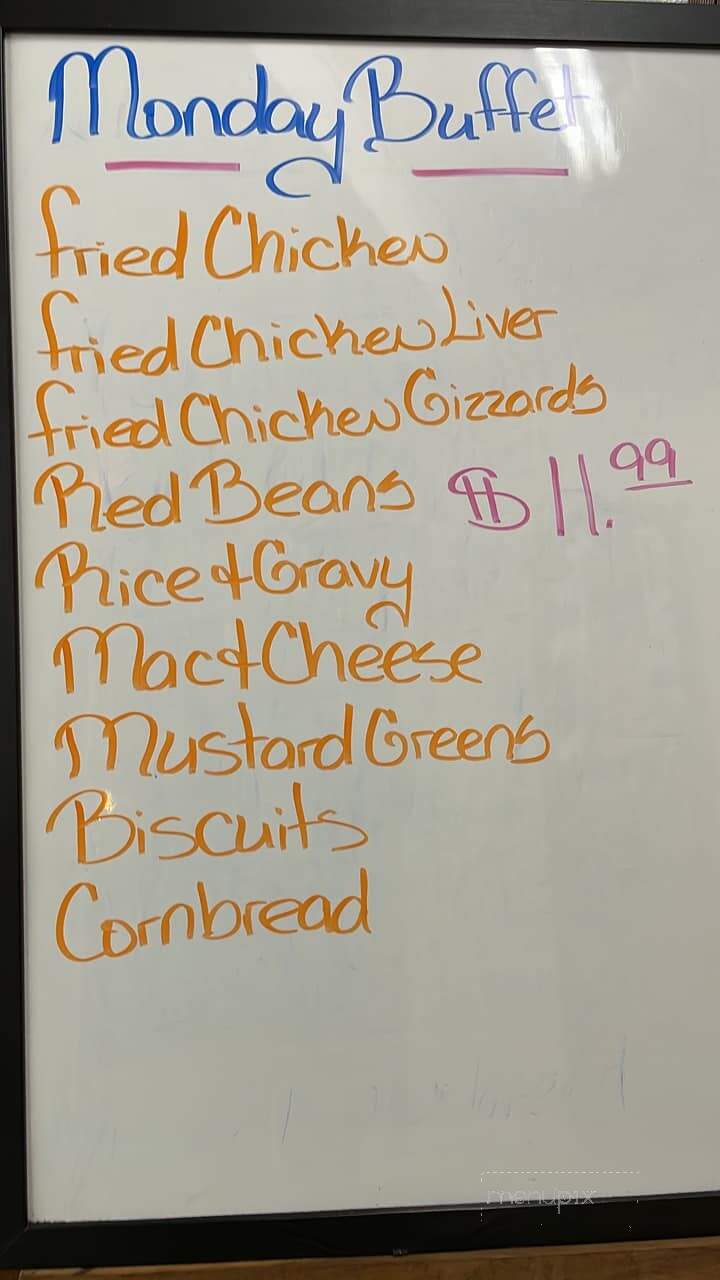 Monday Buffet
fried Chicken
fried Chicken Liver
fried Chicken Gizzards
Red Beans $11.99
Rice & Gravy
Mac & Cheese
Mustard Greens
Biscuits
Cornbread
menupix